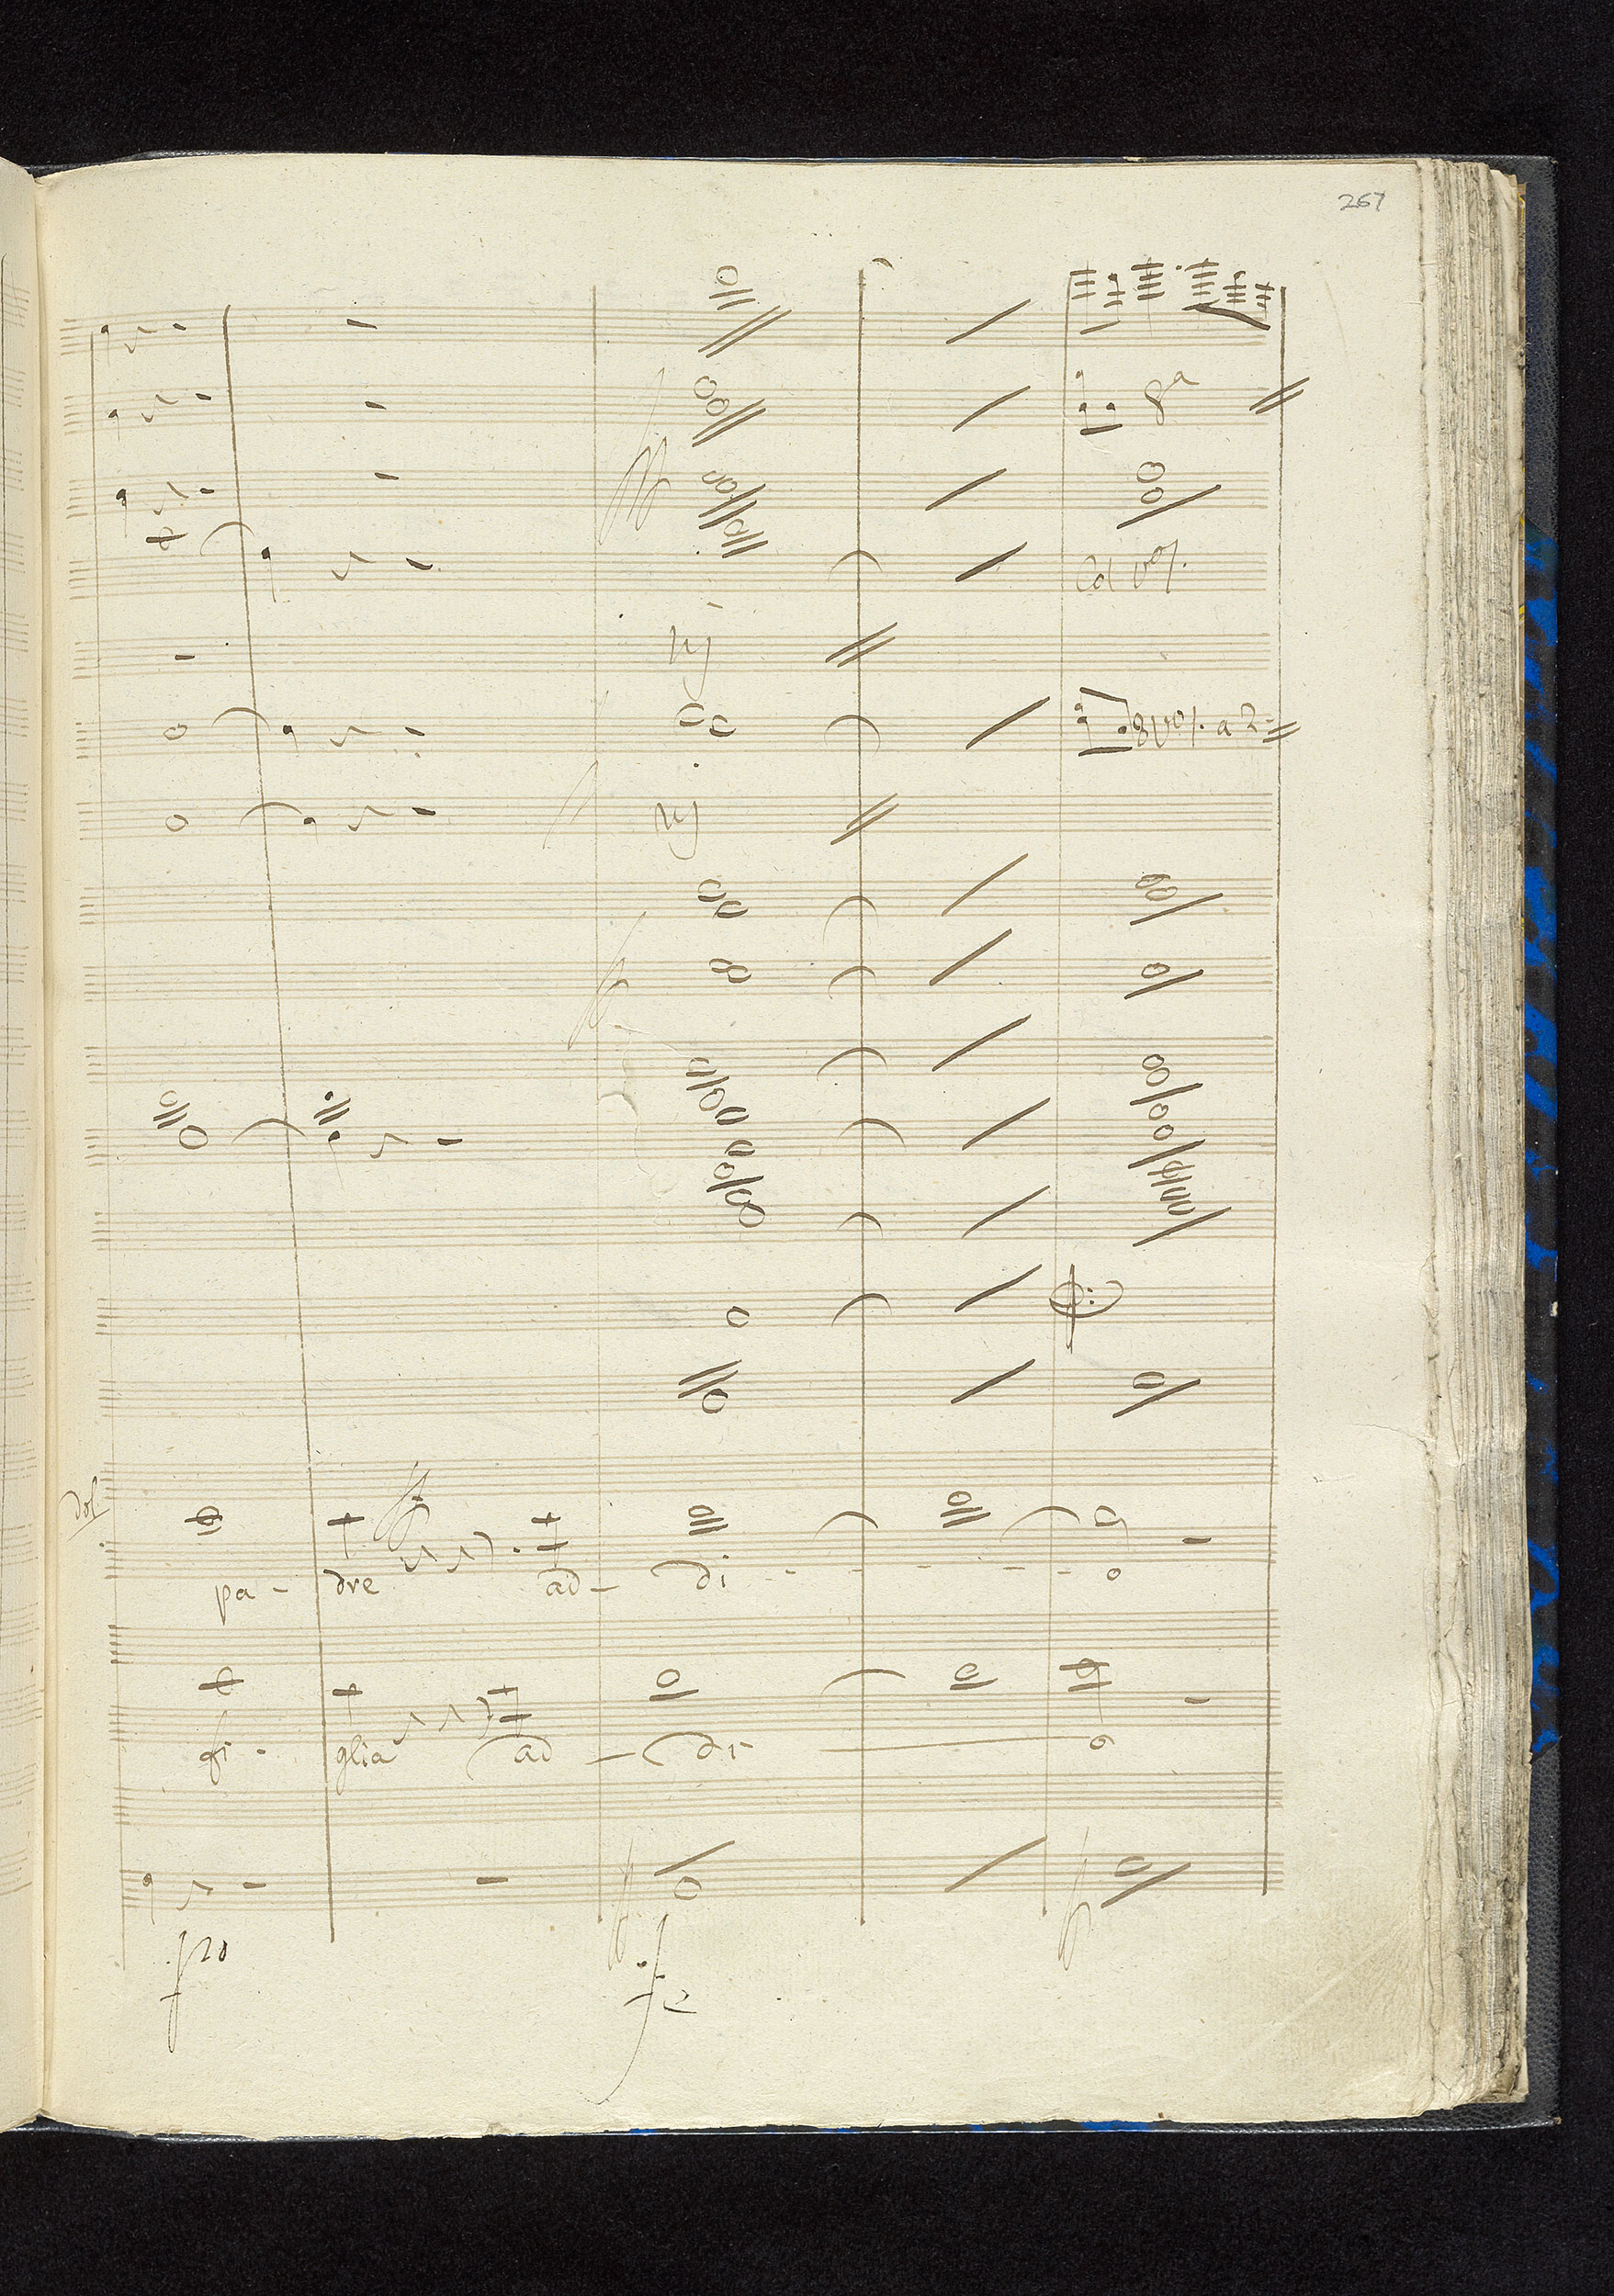 267
8a
Col vo/.
8 vo/. a 2
dol
pa - dre ad - di - - - - o
fi - glia ad - di o
po
fe